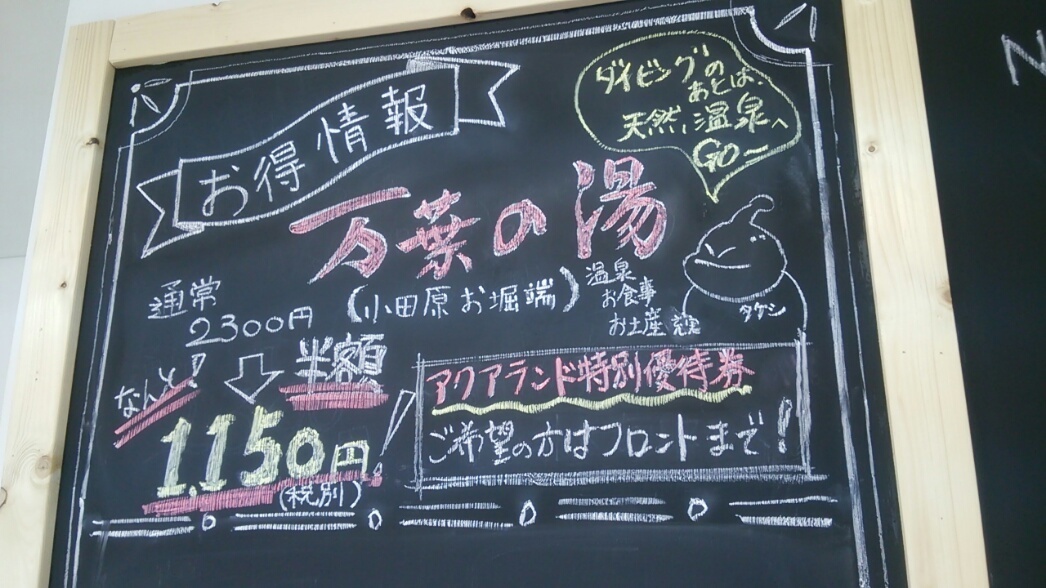 お得情報
ダイビングの
あとは、
天然温泉へ
GO〜
万葉の湯
(小田原お堀端)
温泉
お食事
お土産
タケシ
通常
2300円
なんと!
半額
1,150円!
(税別)
アクアランド特別優待券
ご希望の方はフロントまで!
N